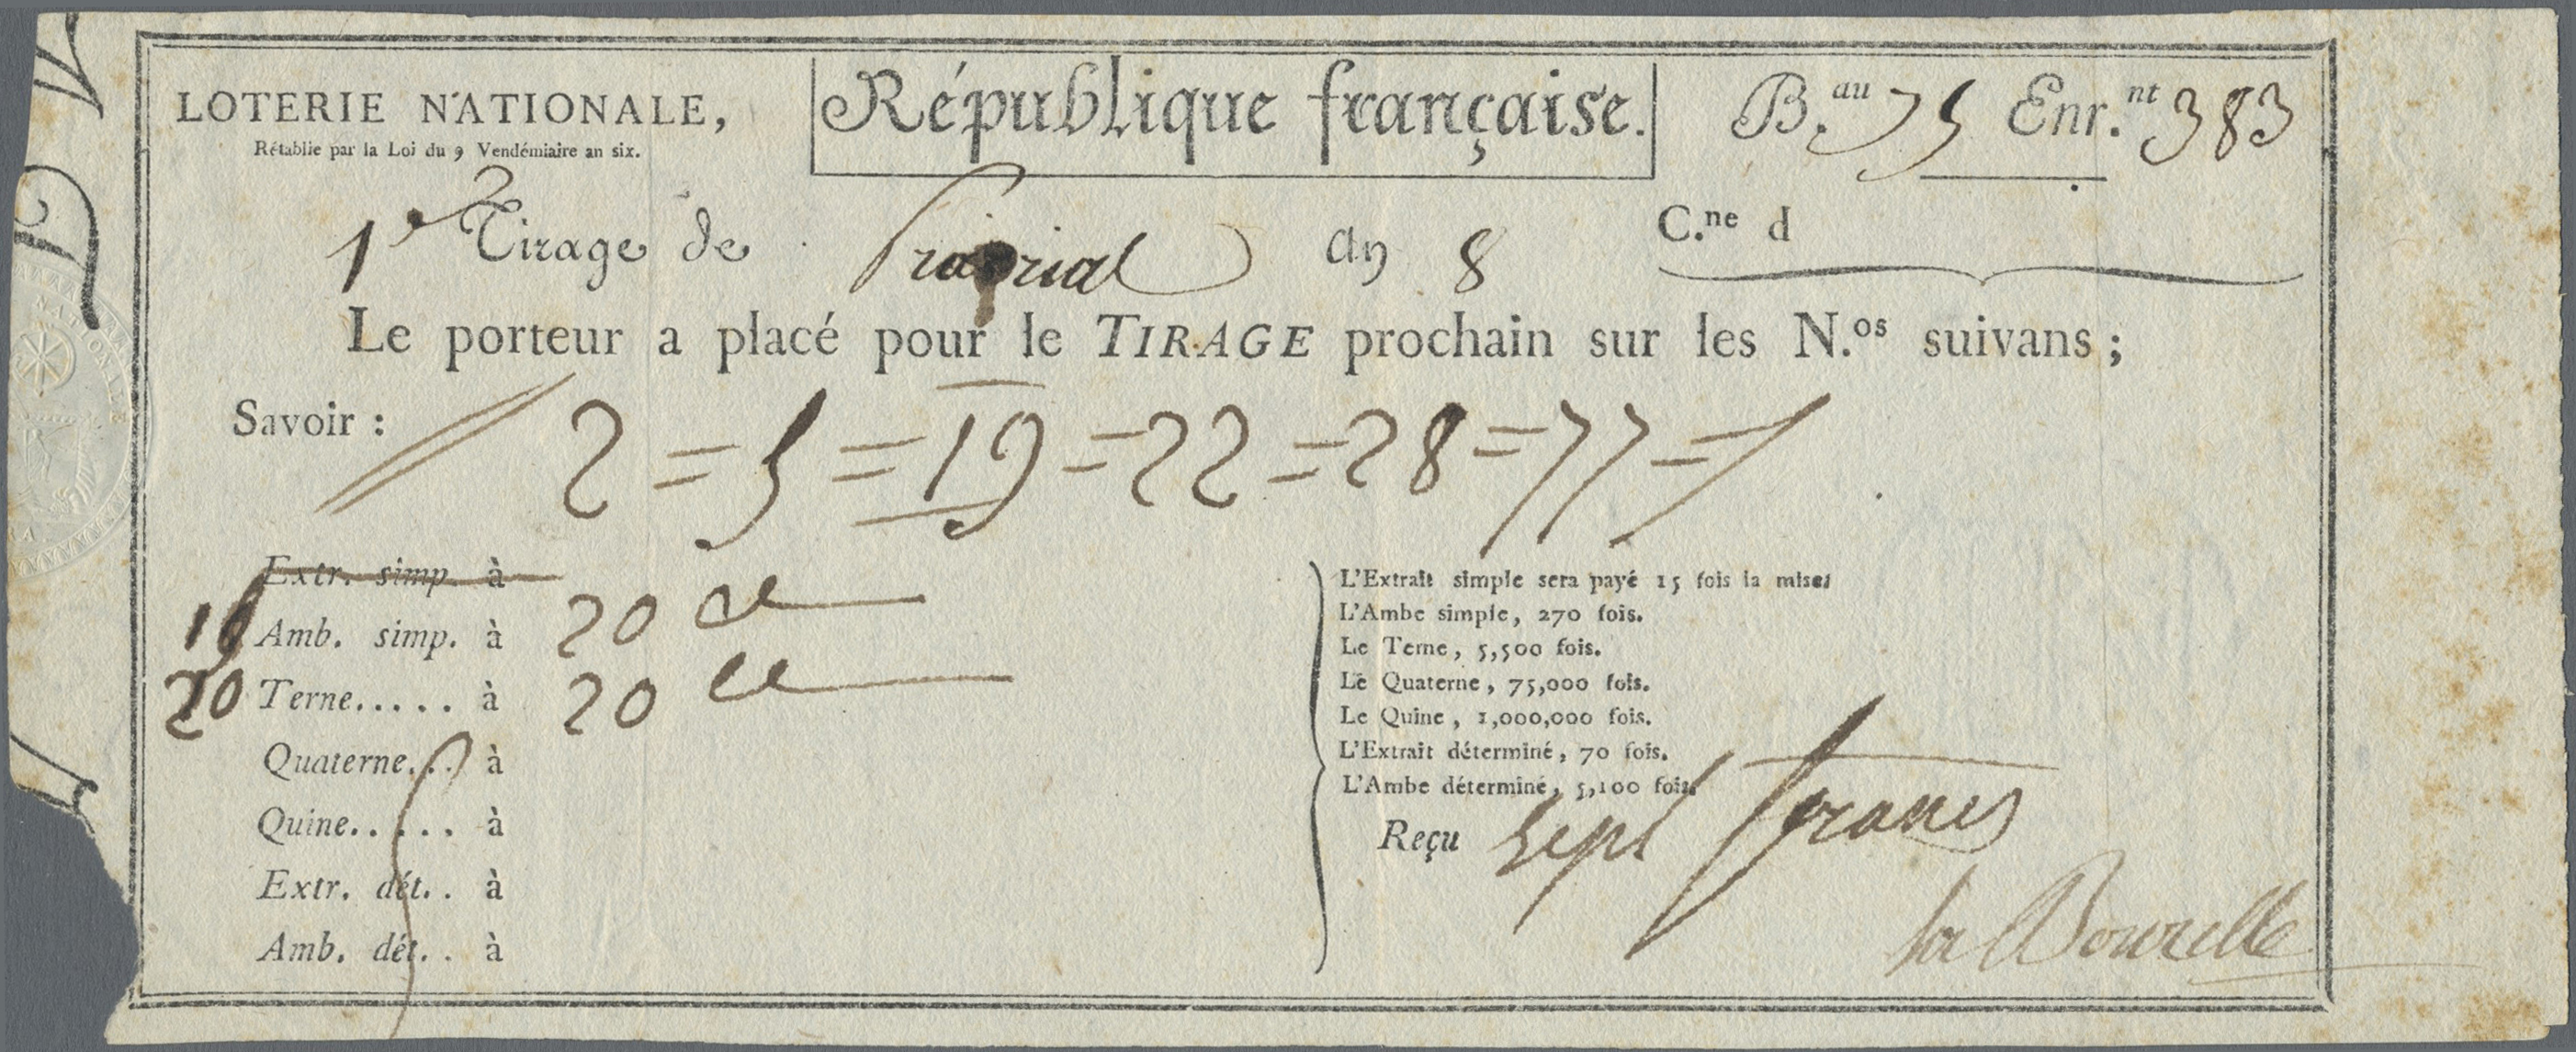 LOTERIE NATIONALE,
Rétablie par la Loi du 9 Vendémiaire an six.
République française.
B.au 75 Enr.nt 383
1er Tirage de Prairial an 8
C.ne d
Le porteur a placé pour le TIRAGE prochain sur les N.os suivans;
Savoir : 2 = 5 = 19 = 22 = 28 = 77 =
Extr. simp. à
15 Amb. simp. à 20 ce
20 Terne..... à 20 ce
Quaterne... à
Quine..... à
Extr. dét.. à
Amb. dét.. à
L'Extrait simple sera payé 15 fois la mise.
L'Ambe simple, 270 fois.
Le Terne, 5,500 fois.
Le Quaterne, 75,000 fois.
Le Quine, 1,000,000 fois.
L'Extrait déterminé, 70 fois.
L'Ambe déterminé, 5,100 fois.
Reçu Sept francs
la Bourelle